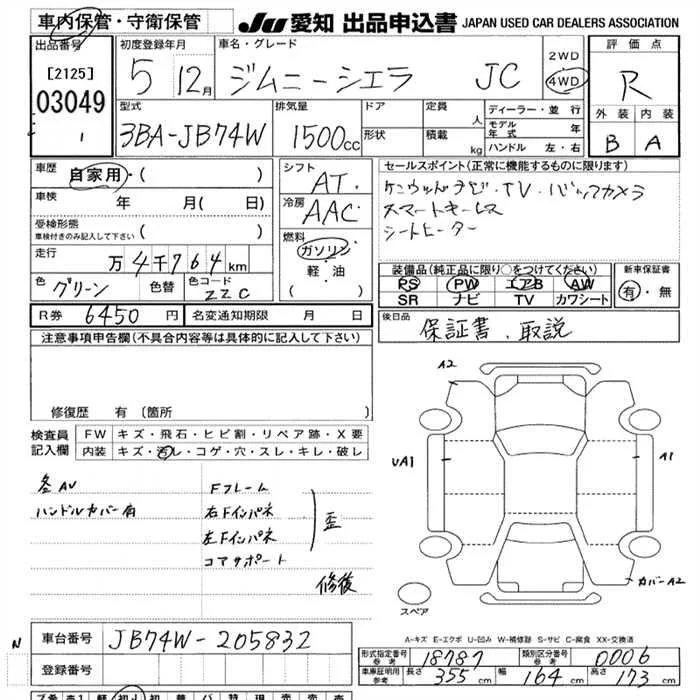 車内保管・守衛保管 JU 愛知 出品申込書 JAPAN USED CAR DEALERS ASSOCIATION
出品番号 初度登録年月 車名・グレード 評価点
[2125] 5 12月 ジムニーシエラ JC 2WD 4WD R
03049
1
型式 排気量 ドア 定員 人 ディーラー・並行 外装 内装
3BA-JB74W 1500cc 形状 積載 kg モデル年式 年 B A
ハンドル 左・右
車歴 自家用・( ) シフト AT. セールスポイント(正常に機能するものに限ります)
車検 年 月( 日) 冷房 AAC ケンウッドナビ・TV・バックカメラ
受検形態 スマートキーレス
車検付きのみ記入して下さい ( ) 燃料 ガソリン シートヒーター
走行 万4千764km 軽・油 ( )
色 グリーン 色替 色コード ZZC
装備品(純正品に限り○をつけてください) 新車保証書
PS PW エアB AW 有・無
SR ナビ TV カワシート
R券 6450円 名変通知期限 月 日 後日品 保証書、取説
注意事項申告欄(不具合内容等は具体的に記入して下さい)
修復歴 有 (箇所 )
検査員記入欄 FW キズ・飛石・ヒビ割・リペア跡・X要
内装 キズ・汚レ・コゲ・穴・スレ・キレ・破レ
A2
UA1 A1
カバーA2
スペア
各AV Fフレーム
ハンドルカバー有 右Fインパネ
左Fインパネ 歪
コアサポート
修後
A-キズ E-エクボ U-凹み W-補修跡 S-サビ C-腐食 XX-交換済
N 車台番号 JB74W-205832
登録番号
形式指定番号 参考 18787 類別区分番号 参考 0006
車庫証明用 参考 長さ 355cm 幅 164cm 高さ 173cm